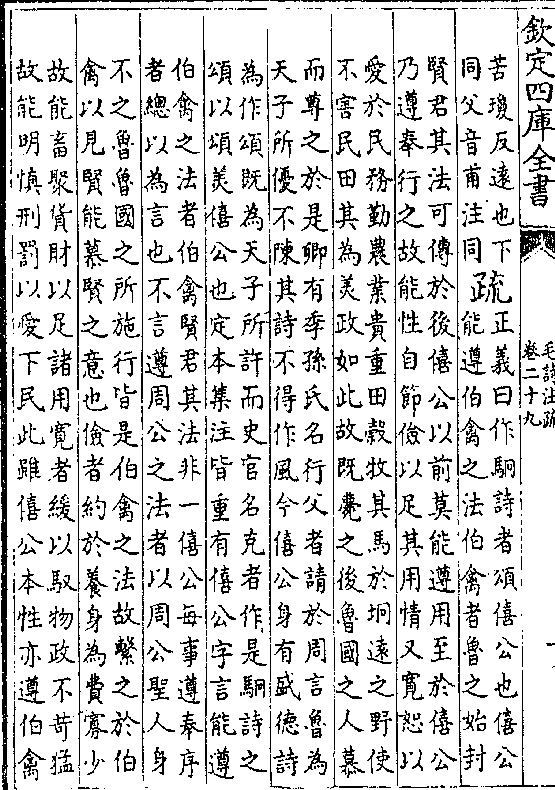 欽定四庫全書
毛詩注疏
卷二十九
苦瓊反遠也下
同父音甫注同
疏
正義曰作駉詩者頌僖公也僖公
能遵伯禽之法伯禽者魯之始封
賢君其法可傳於後僖公以前莫能遵用至於僖公
乃遵奉行之故能性自節儉以足其用情又寬恕以
愛於民務勤農業貴重田榖牧其馬於坰遠之野使
不害民田其為美政如此故既薨之後魯國之人慕
而尊之於是卿有季孫氏名行父者請於周言魯為
天子所優不陳其詩不得作風今僖公身有盛德詩
為作頌既為天子所許而史官名克者作是駉詩之
頌以頌美僖公也定本集注皆重有僖公字言能遵
伯禽之法者伯禽賢君其法非一僖公每事遵奉序
者總以為言也不言遵周公之法者以周公聖人身
不之魯魯國之所施行皆是伯禽之法故繫之於伯
禽以見賢能慕賢之意也儉者約於養身為費寡少
故能畜聚貨財以足諸用寬者緩以馭物政不苛猛
故能明慎刑罰以愛下民此雖僖公本性亦遵伯禽